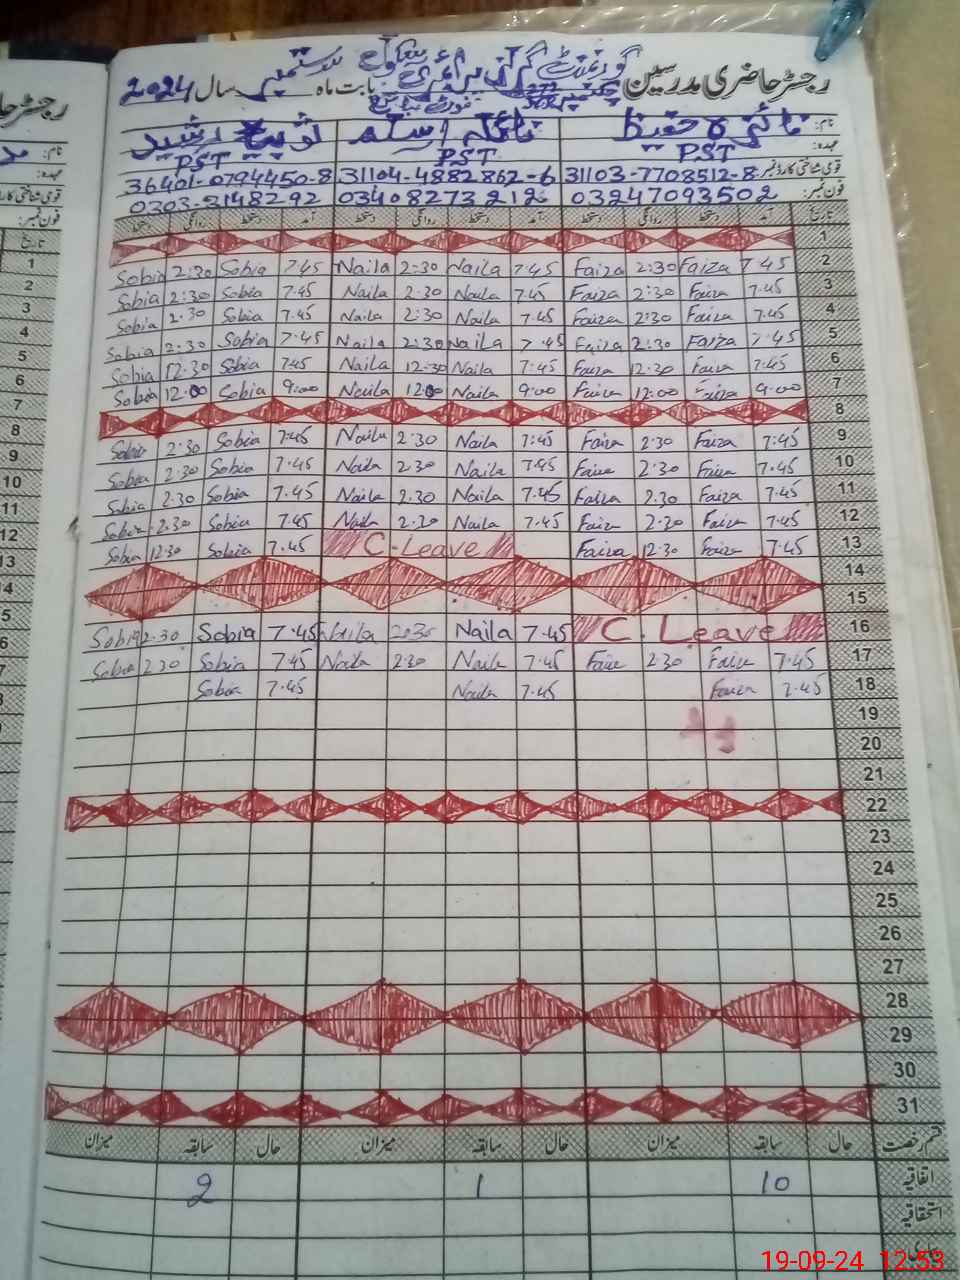 رجسٹر حاضری مدرسین گورنمنٹ گرلز پرائمری سکول بابت ماہ ستمبر سال 2024
نام: فائزہ حفیظ نائلہ اسلم ثوبیہ رشید
عہدہ: PST PST PST
قومی شناختی کارڈ نمبر 31103-7708512-8 31104-4882862-6 36401-0794450-8
فون نمبر: 03247093502 03408273212 0303-3148292
تاریخ آمد دستخط روانگی دستخط آمد دستخط روانگی دستخط آمد دستخط روانگی دستخط
1
2 7.45 Faiza 2:30 Faiza 7.45 Naila 2:30 Naila 7.45 Sobia 2:30 Sobia
3 7.45 Faiza 2:30 Faiza 7.45 Naila 2.30 Naila 7.45 Sobia 2:30 Sobia
4 7.45 Faiza 2:30 Faiza 7.45 Naila 2:30 Naila 7.45 Sobia 2.30 Sobia
5 7.45 Faiza 2:30 Faiza 7.45 Naila 2:30 Naila 7.45 Sobia 2:30 Sobia
6 7.45 Faiza 12.30 Faiza 7:45 Naila 12.30 Naila 7.45 Sobia 12.30 Sobia
7 9.00 Faiza 12:00 Faiza 9.00 Naila 12.00 Naila 9:00 Sobia 12.00 Sobia
8
9 7:45 Faiza 2.30 Faiza 7:45 Naila 2.30 Naila 7.45 Sobia 2.30 Sobia
10 7.45 Faiza 2.30 Faiza 7.45 Naila 2.30 Naila 7.45 Sobia 2.30 Sobia
11 7.45 Faiza 2.30 Faiza 7.45 Naila 2.30 Naila 7.45 Sobia 2.30 Sobia
12 7.45 Faiza 2.30 Faiza 7.45 Naila 2.30 Naila 7.45 Sobia 2.30 Sobia
13 7.45 Faiza 12.30 Faiza C. Leave 7.45 Sobia 12.30 Sobia
14
15
16 C. Leave 7.45 Naila 2:30 Naila 7.45 Sobia 2.30 Sobia
17 7.45 Faiza 2.30 Faiza 7.45 Naila 2.30 Naila 7.45 Sobia 2.30 Sobia
18 7.45 Faiza 7.45 Naila 7.45 Sobia
19
20
21
22
23
24
25
26
27
28
29
30
31
قسم رخصت حال سابقہ میزان حال سابقہ میزان حال سابقہ میزان
اتفاقیہ 10 1 2
استحقاقیہ
19-09-24 12:53